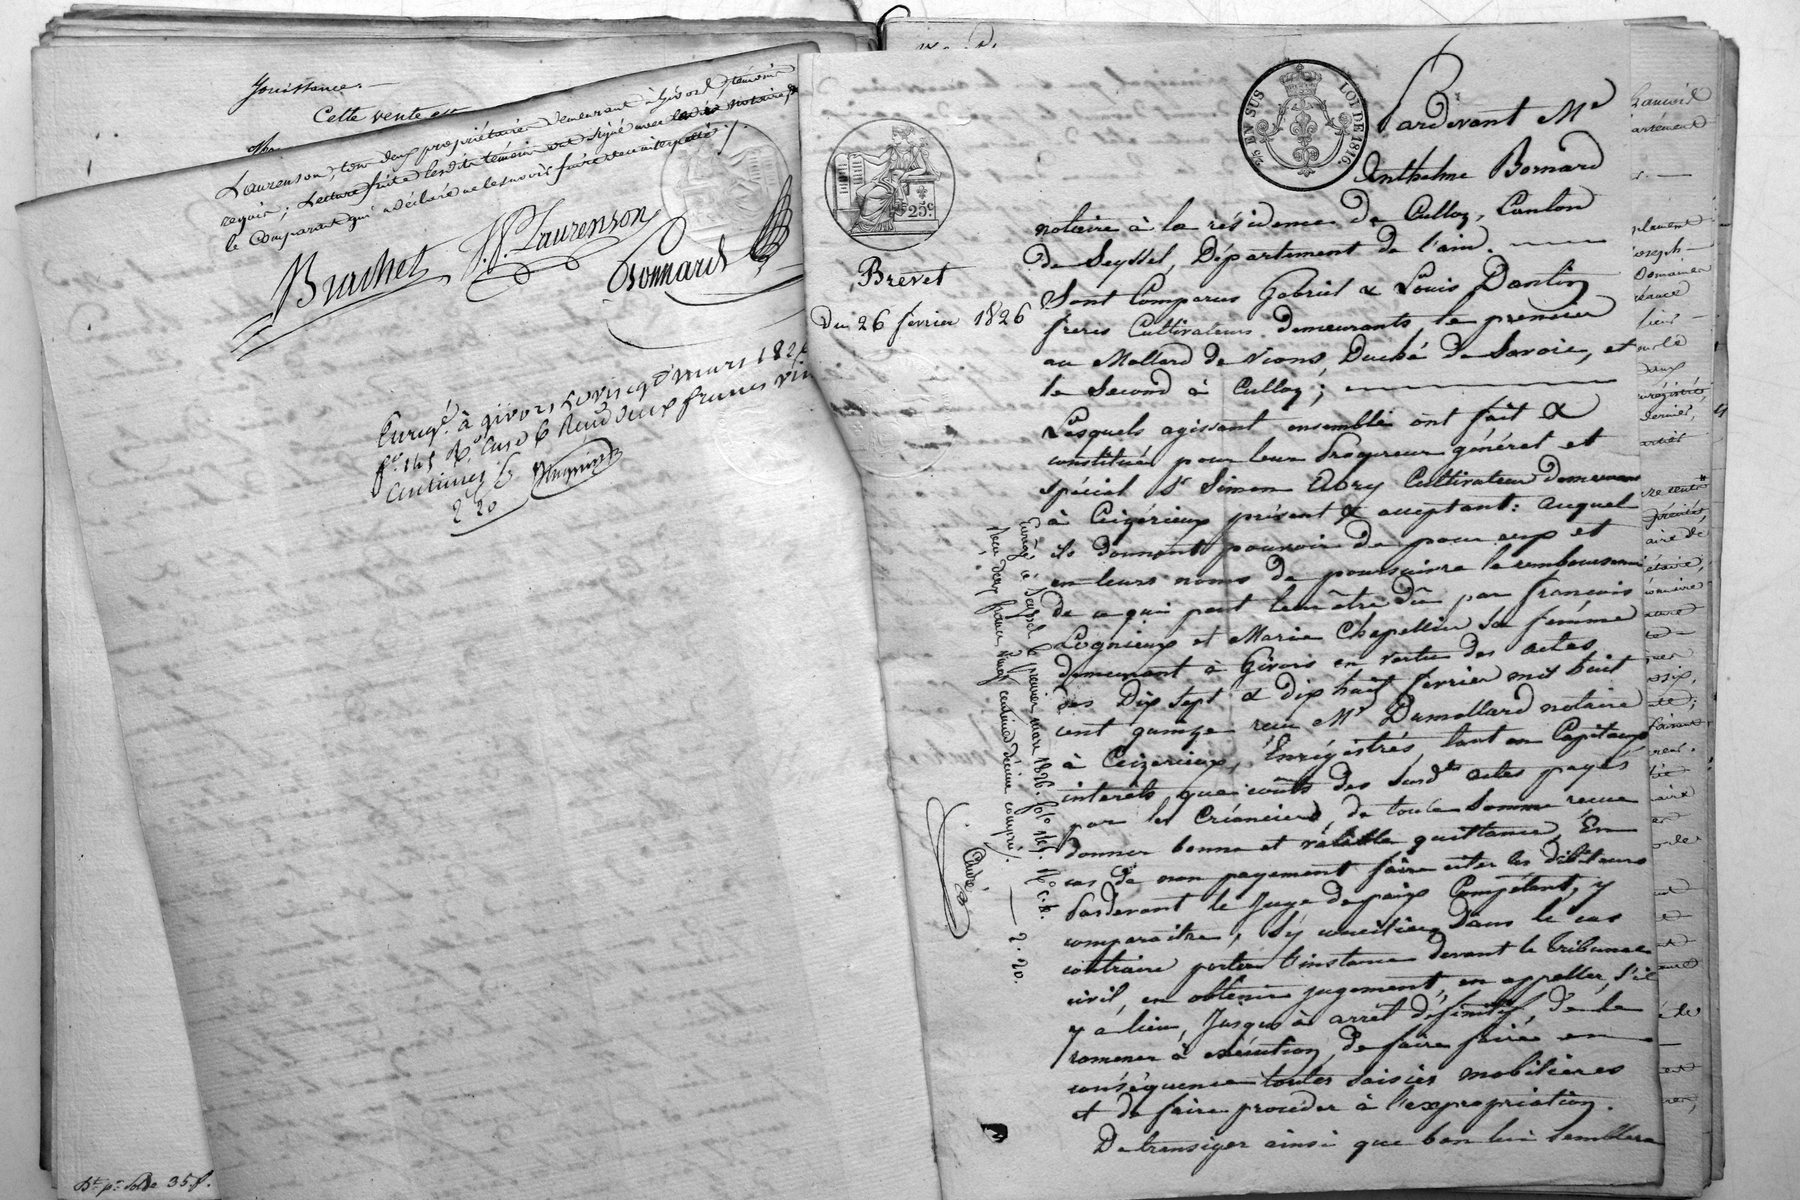 Jouissance.
Cette vente est
Laurenson, tous deux propriétaires demeurant à Givors, témoins
requis; Lecture faite lesdits témoins ont signé avec ledit notaire,
le Comparant qui a déclaré ne le savoir faire de ce interpellé ./.
Brachet J.P. Laurenson
Bonnard
Enregt. à Givors le vingt mars 182
f° 145 R° Case 6 Reçu deux francs vin
Centimes
2 20
Bt. pr. Solde 35 f.
25 EN SUS LOI DE 1816.
25 c.
Brevet
Du 26 février 1826
Enregt. à Seyssel le premier mars 1826. folo 145. Ro. c. 6.
Reçu deux francs vingt centimes décime compris.
2. 20.
Pardevant Me
Anthelme Bornard
notaire à la résidence de Culloz, Canton
de Seyssel, Département de l'ain.
Sont Comparus Gabriel & Louis Dantin
frères Cultivateurs demeurants, le premier
au Mollard de Vions Duché de Savoie, et
le Second à Culloz;
Lesquels agissant ensemble ont fait &
constitué pour leur Procureur général et
spécial Sr Simon Abry Cultivateur demeurant
à Ceizérieux présent & acceptant: auquel
ils donnent pouvoir de pour eux et
en leurs noms de poursuivre le remboursement
de ce qui peut leur être dû par françois
Lognieux et Marie Chapellier sa femme
demeurant à Givors en vertu des actes
des Dix sept & dix huit février mil huit
cent quinze reçu Me Dumollard notaire
à Ceizerieux, Enrégistrés, tant en Capitaux
interets, que coûts des susdts actes payés
par les Créanciers, de toute Somme reçue
donner bonne et valable quittance, En
cas de non payement faire citer les débiteurs
Pardevant le Juge de paix Compétant, y
comparaitre, s'y concilier, dans le cas
contraire porter l'instance devant le tribunal
civil, en obtenir jugement, en appeller, s'il
y a lieu, Jusques à arrêt définitif, de le
ramener à exécution, de faire faire en
conséquence toutes saisies mobilières
et de faire procéder à l'expropriation.
De transiger ainsi que bon lui semblera